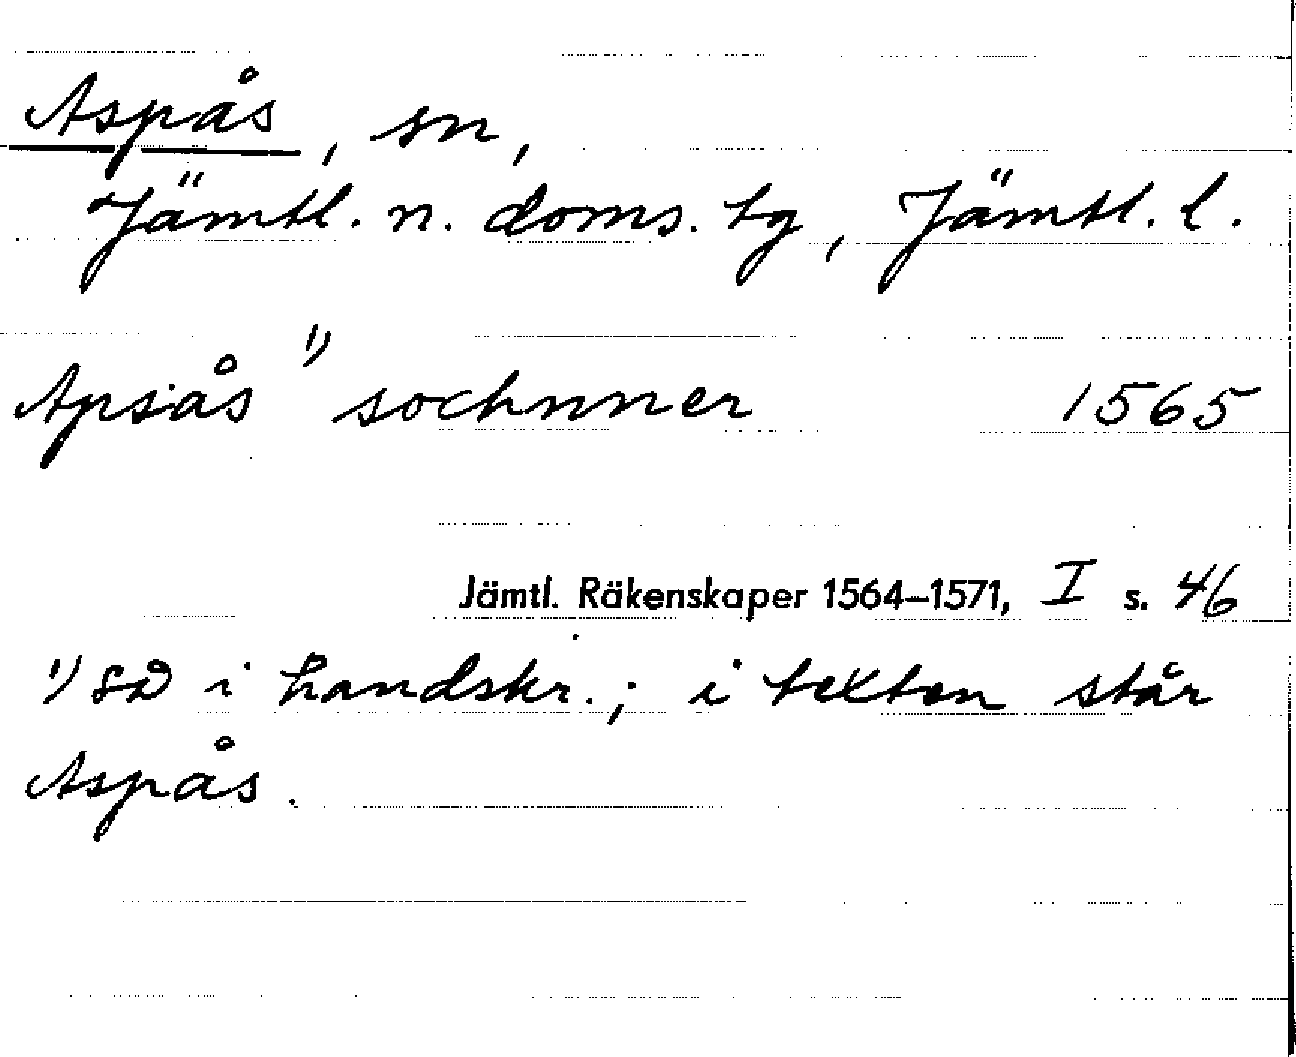 Aspås, sn,
Jämtl. n. doms. tg, Jämtl. l.
Apsås 1) sochnner 1565
Jämtl. Räkenskaper 1564–1571, I s. 46
1) så i handskr.; i texten står
Aspås.